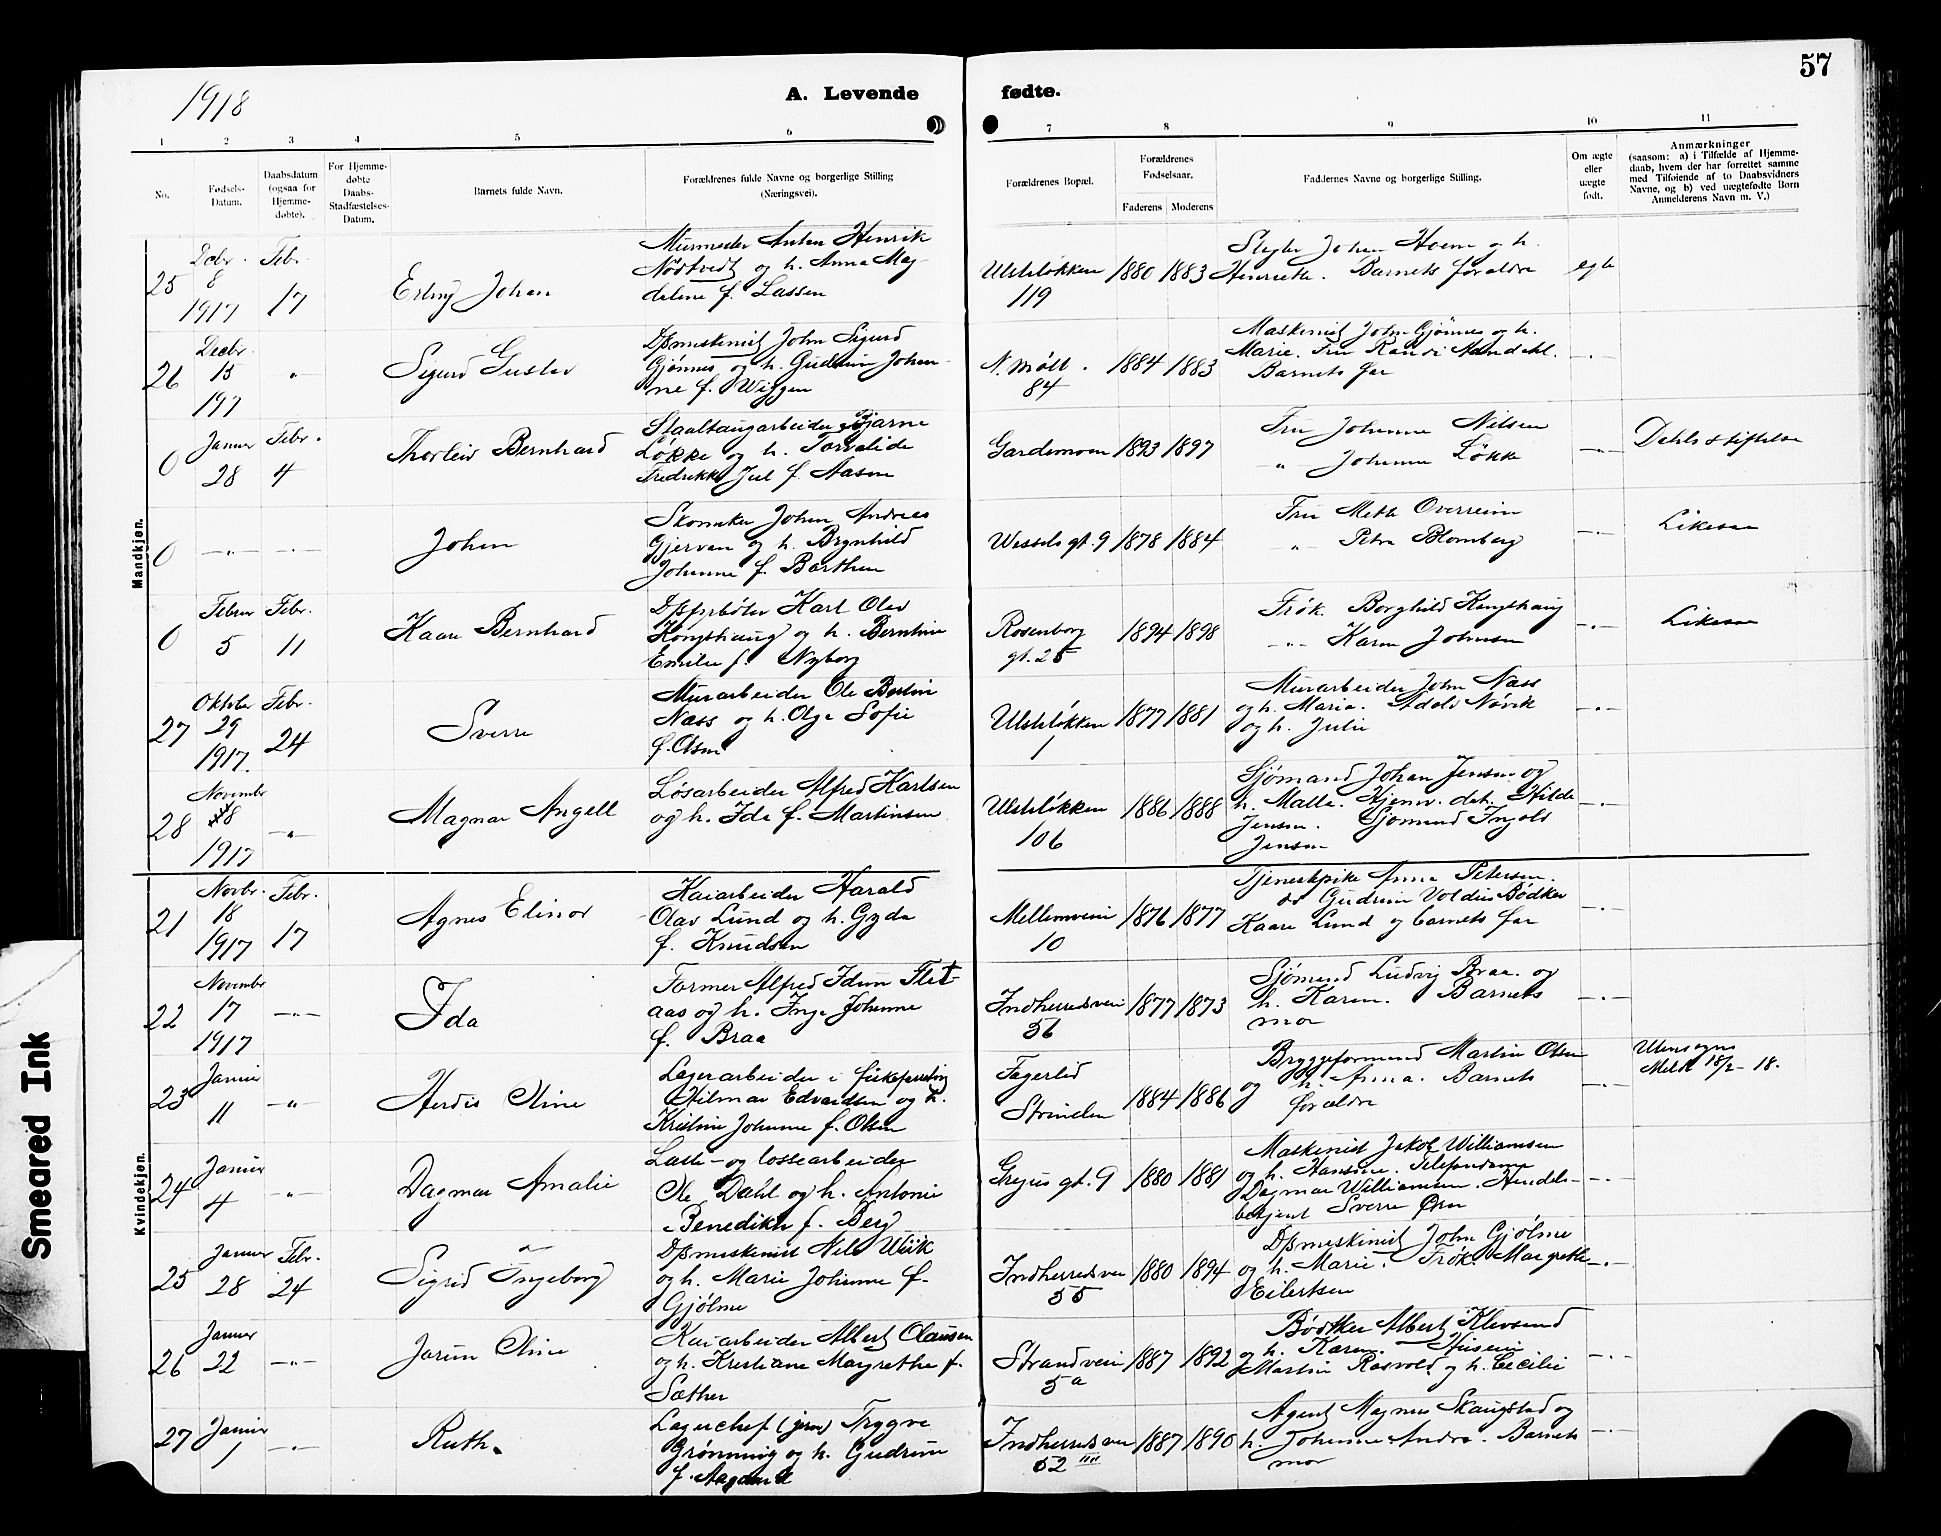 57
1918
A. Levende fødte.
1 2 3 4 5 6 7 8 9 10 11
No.
Fødsels-
Datum.
Daabsdatum
(ogsaa for
Hjemme-
døbte).
For Hjemme-
døbte
Daabs-
Stadfæstelses-
Datum.
Barnets fulde Navn.
Forældrenes fulde Navne og borgerlige Stilling
(Næringsvei).
Forældrenes Bopæl.
Forældrenes
Fødselsaar.
Faderens Moderens
Faddernes Navne og borgerlige Stilling.
Om ægte
eller
uægte
født.
Anmærkninger
(saasom: a) i Tilfælde af Hjemme-
daab, hvem der har forrettet samme
med Tilføiende af to Daabsvidners
Navne, og b) ved uægtefødte Børn
Anmelderens Navn m. V.)
Mandkjøn.
25
Decbr.
8
1917
Febr.
17
Erling Johan
Murmester Anton Henrik
Nödtvedt og h. Anna Mag-
dalene f. Lassen
119
1880 1883
Johan Hoem og h.
Henriette. Barnets forældre
egte
26
Decbr.
15
197
"
Sigurd Gustav
Dpsmaskinist John Sigurd
Gjønnes og h. Gudrun Johan-
ne f. Wiggen
N. Møll.
84
1884 1883
Maskinist John Gjønnes og h.
Marie. Fru Randi
Barnets far
-"-
0
Januar
28
Febr.
4
Thorleiv Bernhard
Staaltaugarbeider Bjarne
Løkke og h. Torvalide
Fredrikke Juel f. Aasen
Gardemoen
1893 1897
Fru Johanne Nilsen
" Johanne Løkke
-"-
Dahls stiftelse
0
-"-
-"-
Johan
Skomaker Johan Andreas
Gjervan og h. Brynhild
Johanne f. Barthen
Wessels gt. 9
1878 1884
Fru Meth Overreim
" Petra Blomberg
-"-
Likesaa
0
Februar
5
Febr.
11
Kaare Bernhard
Dpsfyrbøter Karl Olav
Kongshaug og h. Berntine
Emilie f. Nyborg
Rosenborg
gt. 25
1894 1898
Frøk. Borghild Kongshaug
-"- Karen Johnsen
-"-
Likesaa
27
Oktober
29
1917.
Febr.
24
Sverre
Murarbeider Ole Bastin
Næss og h. Olga Sofie
f. Olsen
1
1877 1881
Murarbeider John Næss
og h. Maria. Adolv Nøvik
og h. Julie
-"-
28
Novembr
8
1917
-"-
Magnar Angell
Løsarbeider Alfred Karlsen
og h. Ida f. Martinsen
106
1886 1888
Sjømand Johan Jensen og
h. Malla. Hjemv. dat. Hilda
Jensen. Sjømand Ingolv
Jensen
-"-
Kvindekjøn.
21
Novbr.
18
1917
Febr.
17
Agnes Elinor
Kaiarbeider Harald
Olav Lund og h. Gyda
f. Knudsen
Mellemveien
10
1876 1877
Tjenestpike Anna Petersen.
do Gudrun Voldus Bødker
Kaare Lund og barnets far
-"-
22
Novembr
17
1917
-"-
Ida
Former Alfred Idun Flat-
aas og h. Inga Johanne
f. Braa
Indherredsveien
56
1877 1873
Sjømand Ludvig Braa. og
h. Karen. Barnets
mor
-"-
23
Januar
11
-"-
Herdis Oline
Lagerarbeider i fiskeforretning
Hilmar Edvardsen og h.
Kristine Johanne f. Olsen
Fagerlid
Strinden
1884 1886
Bryggeformand Martin Olsen
og h. Anna. Barnets
forældre
-"-
Utensogns
Meldt 18/2-18.
24
Januar
4
-"-
Dagmar Amalie
Laste- og lossearbeider
Ole Dahl og h. Antonie
Benedikte f. Berg
gt. 9
1880 1881
Maskinist Jakob Williamsen
og h. Hansine. Telefondame
Dagmar Williamsen. Handels-
betjent Sverre Øien
-"-
25
Januar
28
Febr.
24
Sigrid Ingeborg
Dpsmaskinist Nels Wiik
og h. Marie Johanne f.
Gjølme
Indherredsvei
55
1880 1894
Dpsmaskinist John Gjølme
og h. Marie. Frøk. Margrethe
Eilertsen
-"-
26
Januar
22
-"-
Jorun Oline
Kaiarbeider Albert Olausen
og h. Kristiane Margrethe f.
Sæther
Strandveien
5a
1887 1892
Bødtker Albert Klevsand
og h. Karen.
Martin Rosvold og h. Cecilie
-"-
27
Januar
1
-"-
Ruth.
Lagerchef (jern) Trygve
Grønning og h. Gudrun
f. Aagaard
Indherredsvei
52 III
1887 1890
Agent Magnus Skaugstad og
h. Johanne Andra. Barnets
mor
-"-
Smeared Ink